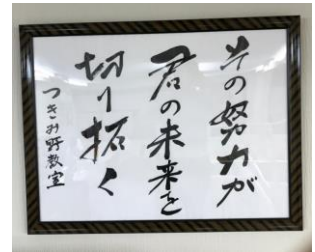 その努力が
君の未来を
切り拓く
つきみ野教室